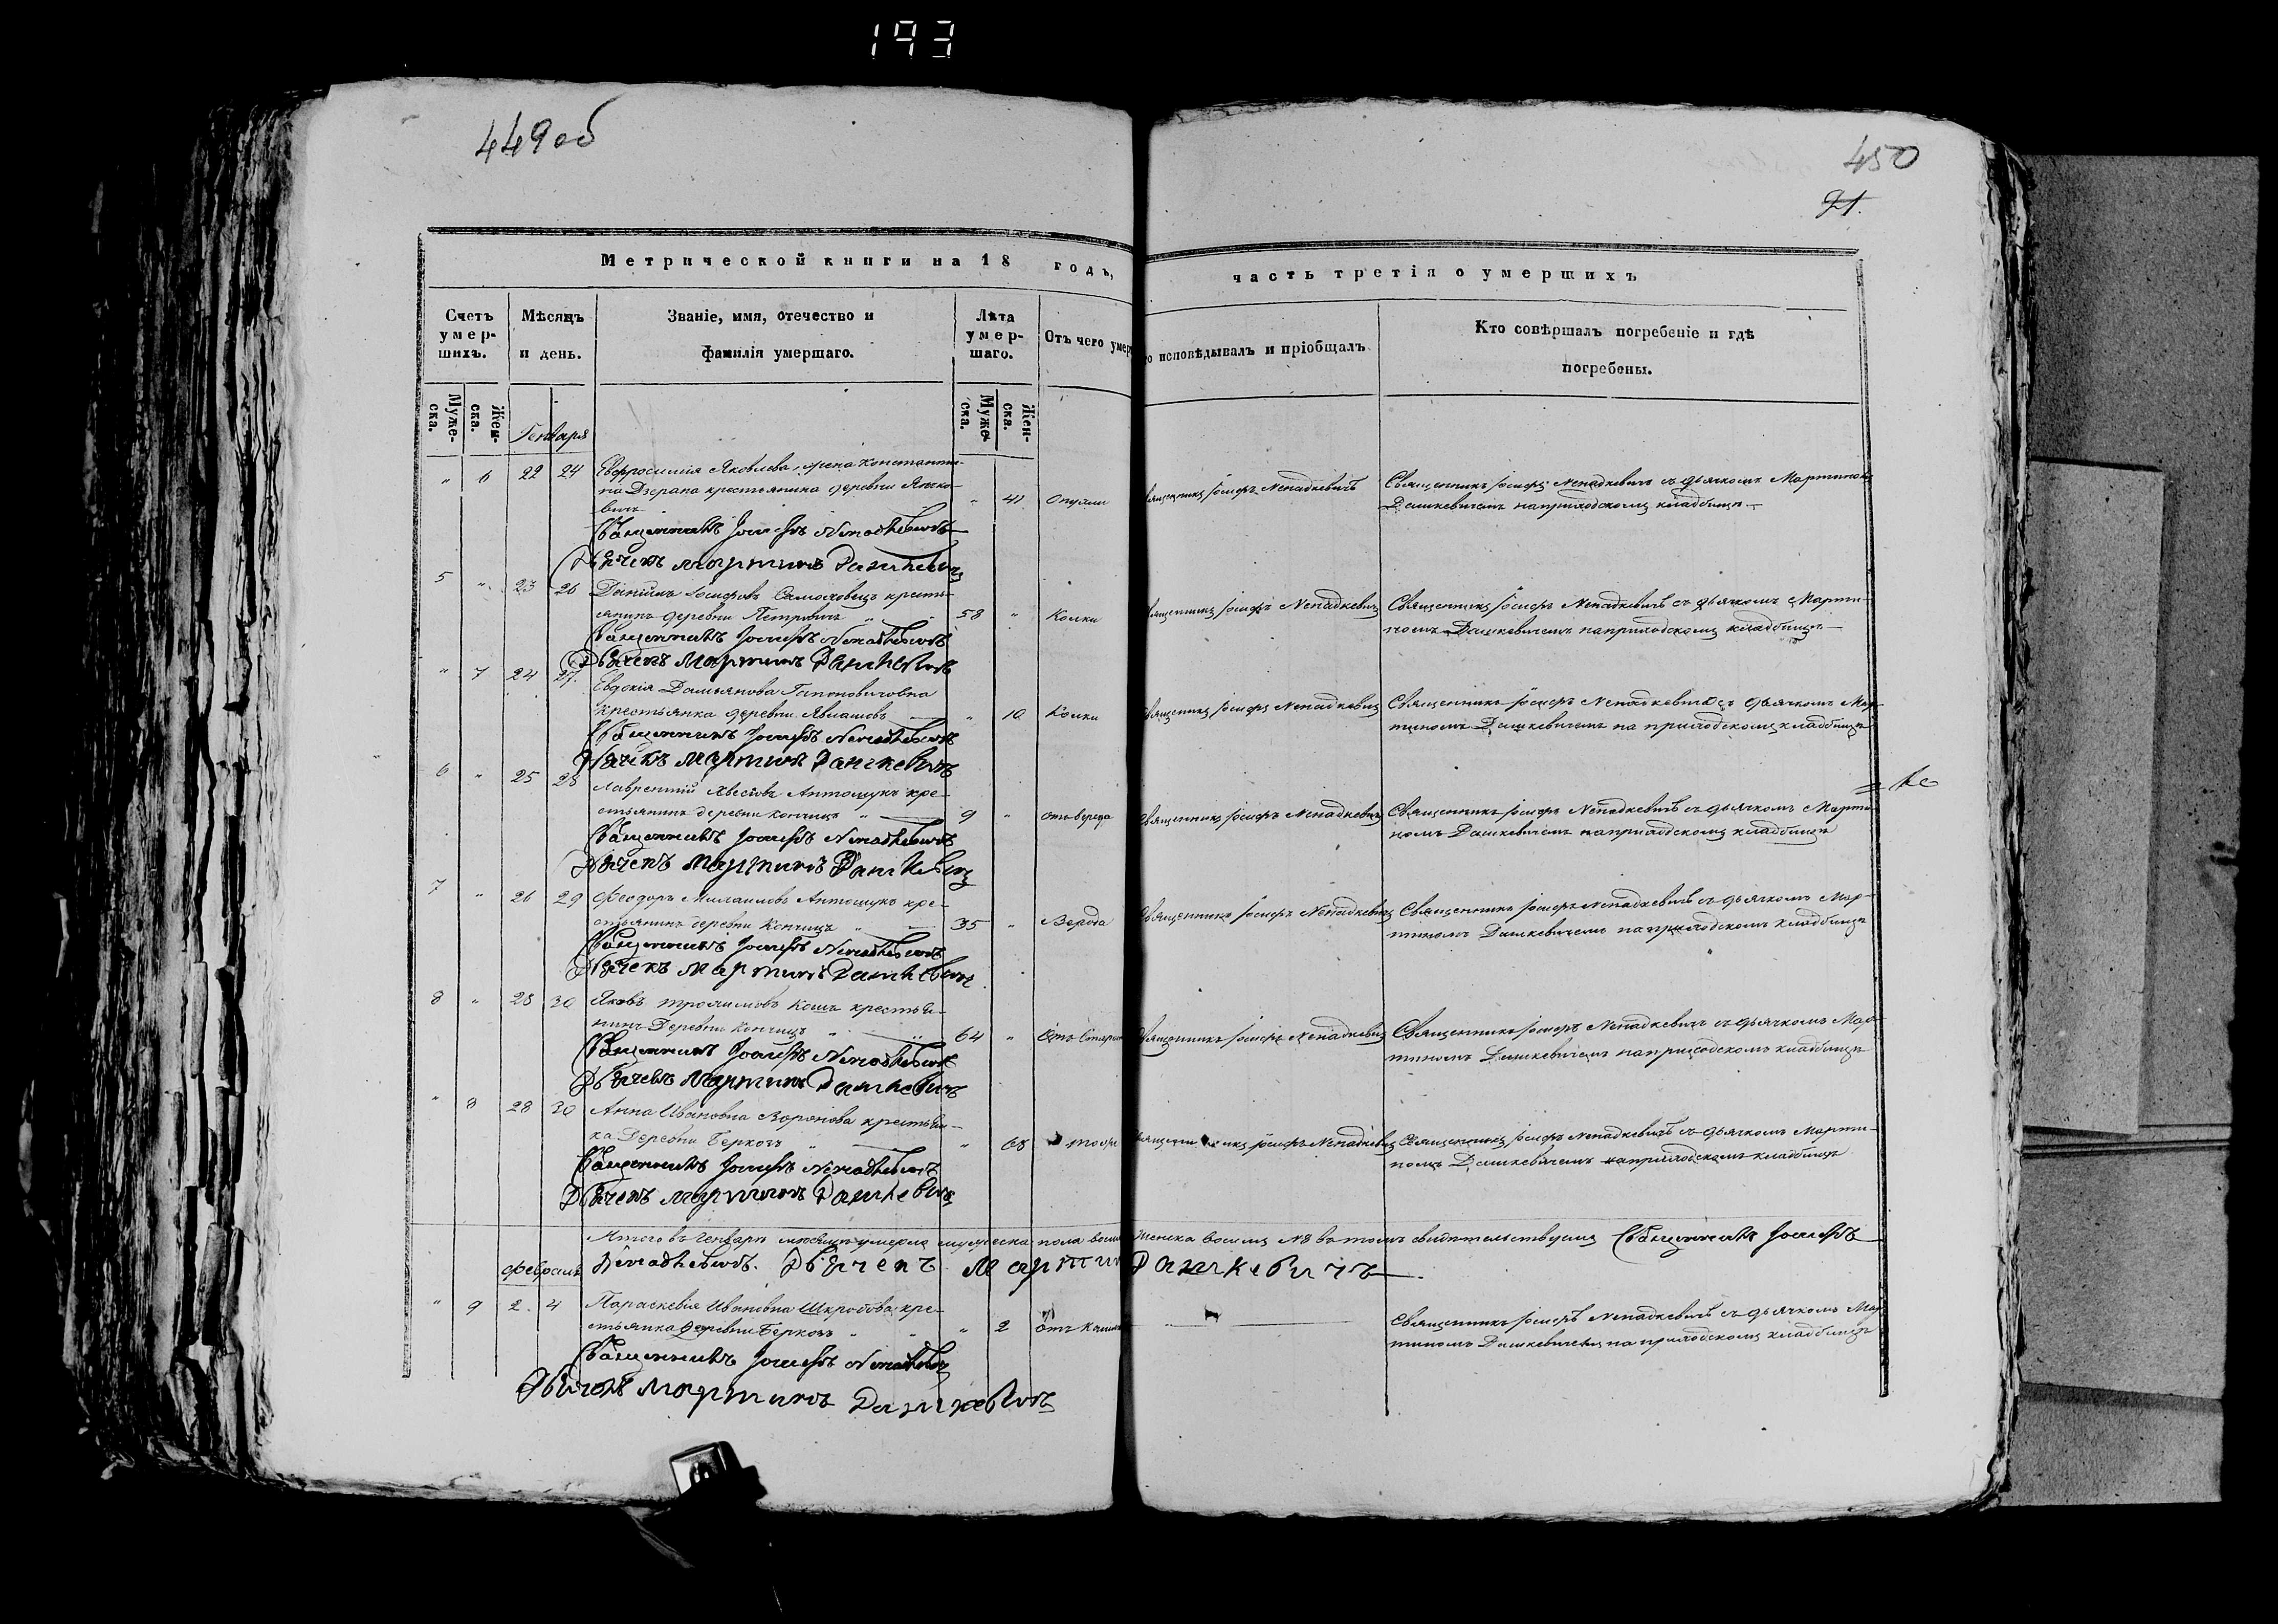 193
449 об
450
91.
Метрической книги на 18 годъ, часть третія о умершихъ
Счетъ умер-шихъ.
Мѣсяцъ и день.
Званіе, имя, отечество и фамилія умершаго.
Лѣта умер-шаго.
Отъ чего умер
о исповѣдывалъ и пріобщалъ
Кто совѣршалъ погребеніе и гдѣ погребены.
Муже-ска.
Жен-ска.
Генваря
Муже-ска.
Жен-ска.
" 6 22 24 Евфросинія Яковлева, жена Константи-
на Дзерана крестьянина деревни
" 41 опухли
Священникъ Іосифъ Ненадкевичъ
Священникъ Іосифъ Ненадкевичъ съ дьячкомъ Мартиномъ
Дашкевичемъ на приходскомъ кладбищѣ
Священникъ Іосифъ Ненадкевичъ
Дьячекъ Мартинъ Дашкевичъ
5 " 23 26 Даніилъ Іосифовъ Самоховецъ кресть-
янинъ деревни Петровичъ " 58 " Колки
Священникъ Іосифъ Ненадкевичъ
Священникъ Іосифъ Ненадкевичъ съ дьячкомъ Марти-
номъ Дашкевичемъ на приходскомъ кладбищѣ
Священникъ Іосифъ Ненадкевичъ
Дьячекъ Мартинъ Дашкевичъ
" 7 24 27. Евдокія Дамьянова Гапоновичовна
крестьянка деревни " 10 Колки
Священникъ Іосифъ Ненадкевичъ
Священникъ Іосифъ Ненадкевичъ съ дьячкомъ Мар-
тиномъ Дашкевичемъ на приходскомъ кладбищѣ
Священникъ Іосифъ Ненадкевичъ
Дьячекъ Мартинъ Дашкевичъ
6 " 25 28 Лаврентій Антощукъ кре-
стьянинъ деревни Кончицъ " 9 " отъ вереда
Священникъ Іосифъ Ненадкевичъ
Священникъ Іосифъ Ненадкевичъ съ дьячкомъ Марти-
номъ Дашкевичемъ на приходскомъ кладбищѣ
Священникъ Іосифъ Ненадкевичъ
Дьячекъ Мартинъ Дашкевичъ
7 " 26 29 Феодоръ Михаиловъ Антощукъ кре-
стьянинъ деревни Кончицъ " 35 " Вереда
Священникъ Іосифъ Ненадкевичъ
Священникъ Іосифъ Ненадкевичъ съ дьячкомъ Мар-
тиномъ Дашкевичемъ на приходскомъ кладбищѣ
Священникъ Іосифъ Ненадкевичъ
Дьячекъ Мартинъ Дашкевичъ
8 " 28 30 Яковъ Трохимовъ Кошъ крестья-
нинъ Деревни Кончицъ " " 64 " Отъ Старо
Священникъ Іосифъ Ненадкевичъ
Священникъ Іосифъ Ненадкевичъ съ дьячкомъ Мар-
тиномъ Дашкевичемъ на приходскомъ кладбищѣ
Священникъ Іосифъ Ненадкевичъ
Дьячекъ Мартинъ Дашкевичъ
" 8 28 30 Анна Ивановна Воронова крестьян-
ка Деревни Беркозъ " " 68 тоже
Священникъ Іосифъ Ненадкевичъ
Священникъ Іосифъ Ненадкевичъ съ дьячкомъ Марти-
номъ Дашкевичемъ на приходскомъ кладбищѣ
Священникъ Іосифъ Ненадкевичъ
Дьячекъ Мартинъ Дашкевичъ
Итого въ Генварѣ мѣсяцѣ умерло мужеска пола восемь женска восемь №8 въ томъ свидѣтельствуемъ Священникъ Іосифъ
Февраль Ненадкевичъ. Дьячекъ Мартинъ Дашкевичъ
" 9 2. 4 Параскевія Ивановна Шкробова кре-
стьянка деревни Беркозъ " " " 2 отъ Кашля
Священникъ Іосифъ Ненадкевичъ съ дьячкомъ Мар-
тиномъ Дашкевичемъ на приходскомъ кладбищѣ
Священникъ Іосифъ Ненадкевичъ
Дьячекъ Мартинъ Дашкевичъ